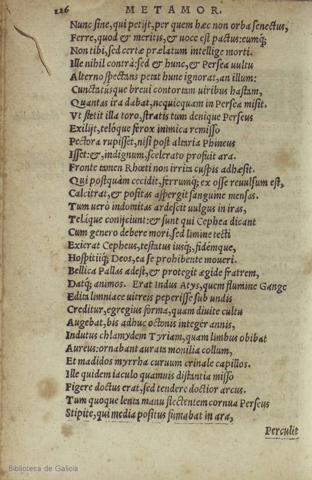 126 METAMOR.
Nunc sine, qui petijt, per quem hæc non orba senectus,
Ferre, quod & meritis, & uoce est pactus: eumq;
Non tibi, sed certæ prælatum intellige morti.
Ille nihil contrà: sed & hunc, & Persea uultu
Alterno spectans petat hunc ignorat, an illum:
Cunctatusque breui contortam uiribus hastam,
Quantas ira dabat, nequicquam in Persea misit.
Vt stetit illa toro, stratis tum denique Perseus
Exilijt, teloque ferox inimica remisso
Pectora rupisset, nisi post altaria Phineus
Isset: &, indignum, scelerato profuit ara.
Fronte tamen Rhœti non irrita cuspis adhæsit.
Qui postquàm cecidit, ferrumq; ex osse reuulsum est,
Calcitrat, & positas aspergit sanguine mensas.
Tum uerò indomitas ardescit uulgus in iras,
Telaque conijciunt: & sunt qui Cephea dicant
Cum genero debere mori, sed limine tecti
Exierat Cepheus, testatus iusq;, fidémque,
Hospitiiq; Deos, ea se prohibente moueri.
Bellica Pallas adest, & protegit ægide fratrem,
Datq; animos. Erat Indus Atys, quem flumine Gange
Edita limniace uitreis peperisse sub undis
Creditur, egregius forma, quam diuite cultu
Augebat, bis adhuc octonis integer annis,
Indutus chlamydem Tyriam, quam limbus obibat
Aureus: ornabant aurata monilia collum,
Et madidos myrrha curuum crinale capillos.
Ille quidem iaculo quamuis distantia misso
Figere doctus erat, sed tendere doctior arcus.
Tum quoque lenta manu flectentem cornua Perseus
Stipite, qui media positus fumabat in ara,
Perculit
Biblioteca de Galicia